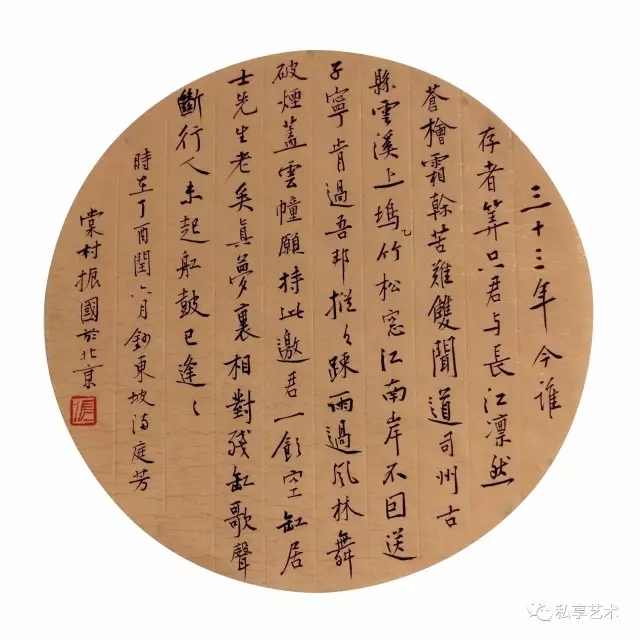 三十三年今誰
存者筭只君与長江凛然
蒼檜霜幹苦難雙聞道司州古
縣雲溪上塢竹松窓江南岸不囙送
子寧肯過吾邦摐々踈雨過風林舞
破煙蓋雲幢願持此邀君一飲空缸居
士先生老矣真夢裏相對殘缸歌聲
斷行人未起舡鼓已逢〻
時在丁酉閏六月鈔東坡满庭芳
棠村振國於北京
私享艺术